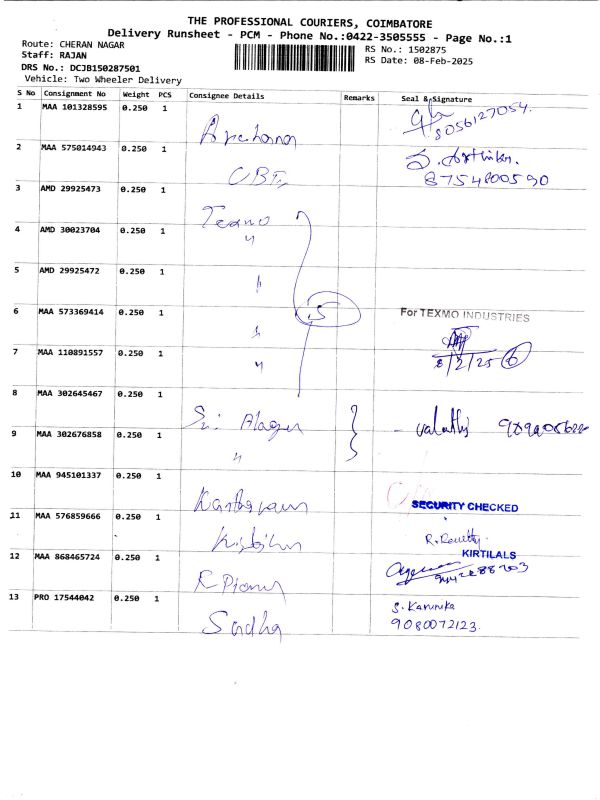 THE PROFESSIONAL COURIERS, COIMBATORE
Delivery Runsheet - PCM - Phone No.:0422-3505555 - Page No.:1
Route: CHERAN NAGAR
RS No.: 1502875
Staff: RAJAN
RS Date: 08-Feb-2025
DRS No.: DCJB150287501
Vehicle: Two Wheeler Delivery
S No Consignment No Weight PCS Consignee Details Remarks Seal & Signature
1 MAA 101328595 0.250 1 Archana 8056127054.
2 MAA 575014943 0.250 1 CBT, 8754800590
3 AMD 29925473 0.250 1 Texmo
4 AMD 30023704 0.250 1 "
5 AMD 29925472 0.250 1 "
6 MAA 573369414 0.250 1 " 5 For TEXMO INDUSTRIES
7 MAA 110891557 0.250 1 " 8/2/25 6
8 MAA 302645467 0.250 1 Sri Alagu
9 MAA 302676858 0.250 1 " - valathi
10 MAA 945101337 0.250 1 SECURITY CHECKED
11 MAA 576859666 0.250 1 KIRTILALS
12 MAA 868465724 0.250 1
13 PRO 17544042 0.250 1 Sadha S. Karunika
9080072123.